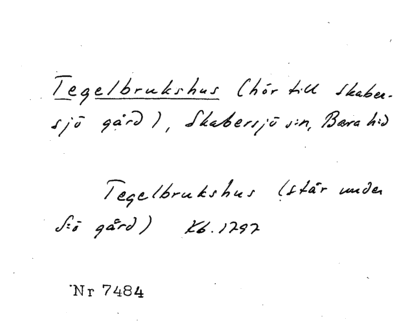 Tegelbrukshus (hör till Skaber-
sjö gård), Skabersjö s:n, Bara hd
Tegelbrukshus (står under
S:ö gård) Kb. 1797
Nr 7484